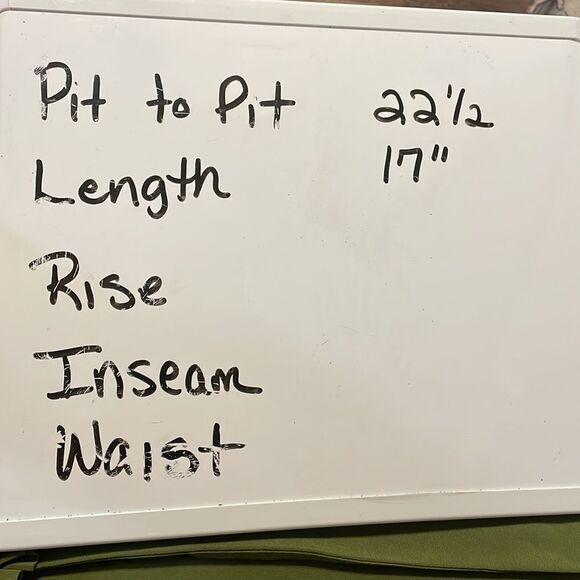 Pit to Pit 22 1/2
Length 17"
Rise
Inseam
Waist